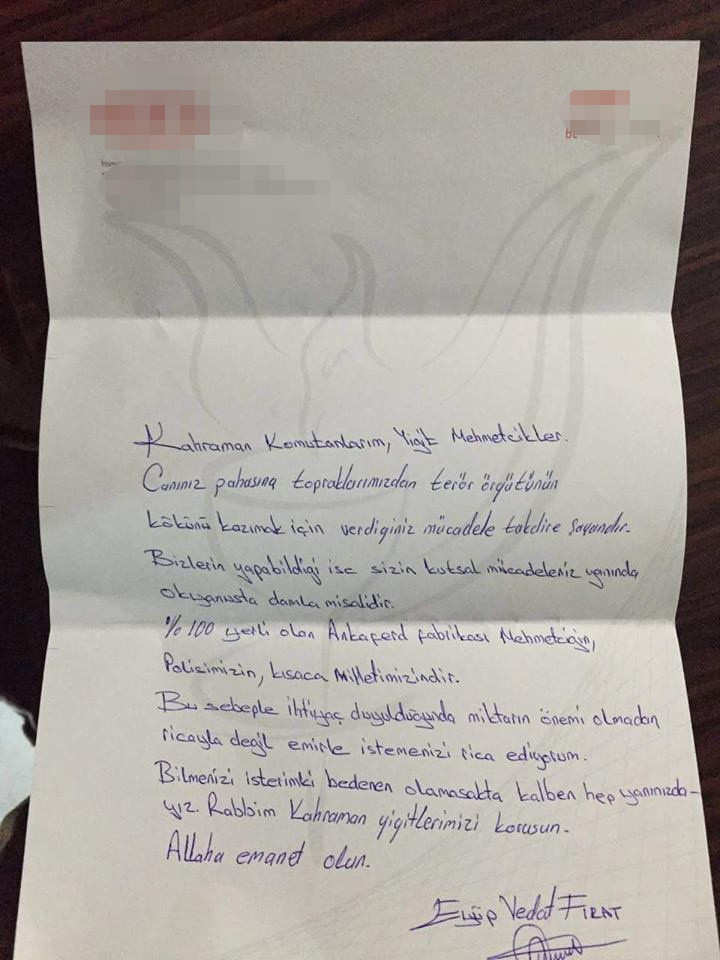 Kahraman Komutanlarım, Yiğit Mehmetcikler.
Canınız pahasına topraklarımızdan terör örgütünün
kökünü kazımak için verdiginiz mücadele takdire şayandır.
Bizlerin yapabildiği ise sizin kutsal mücadeleniz yanında
okyanusta damla misalidir.
%100 yerli olan Ankaferd fabrikası Mehmetciğin,
Polisimizin, kısaca Milletimizindir.
Bu sebeple ihtiyaç duyulduğunda miktarın önemi olmadan
ricayla değil emirle istemenizi rica ediyorum.
Bilmenizi isterimki bedenen olamasakta kalben hep yanınızda-
yız. Rabbim Kahraman yigitlerimizi korusun.
Allaha emanet olun.
Eyüp Vedat FIRAT